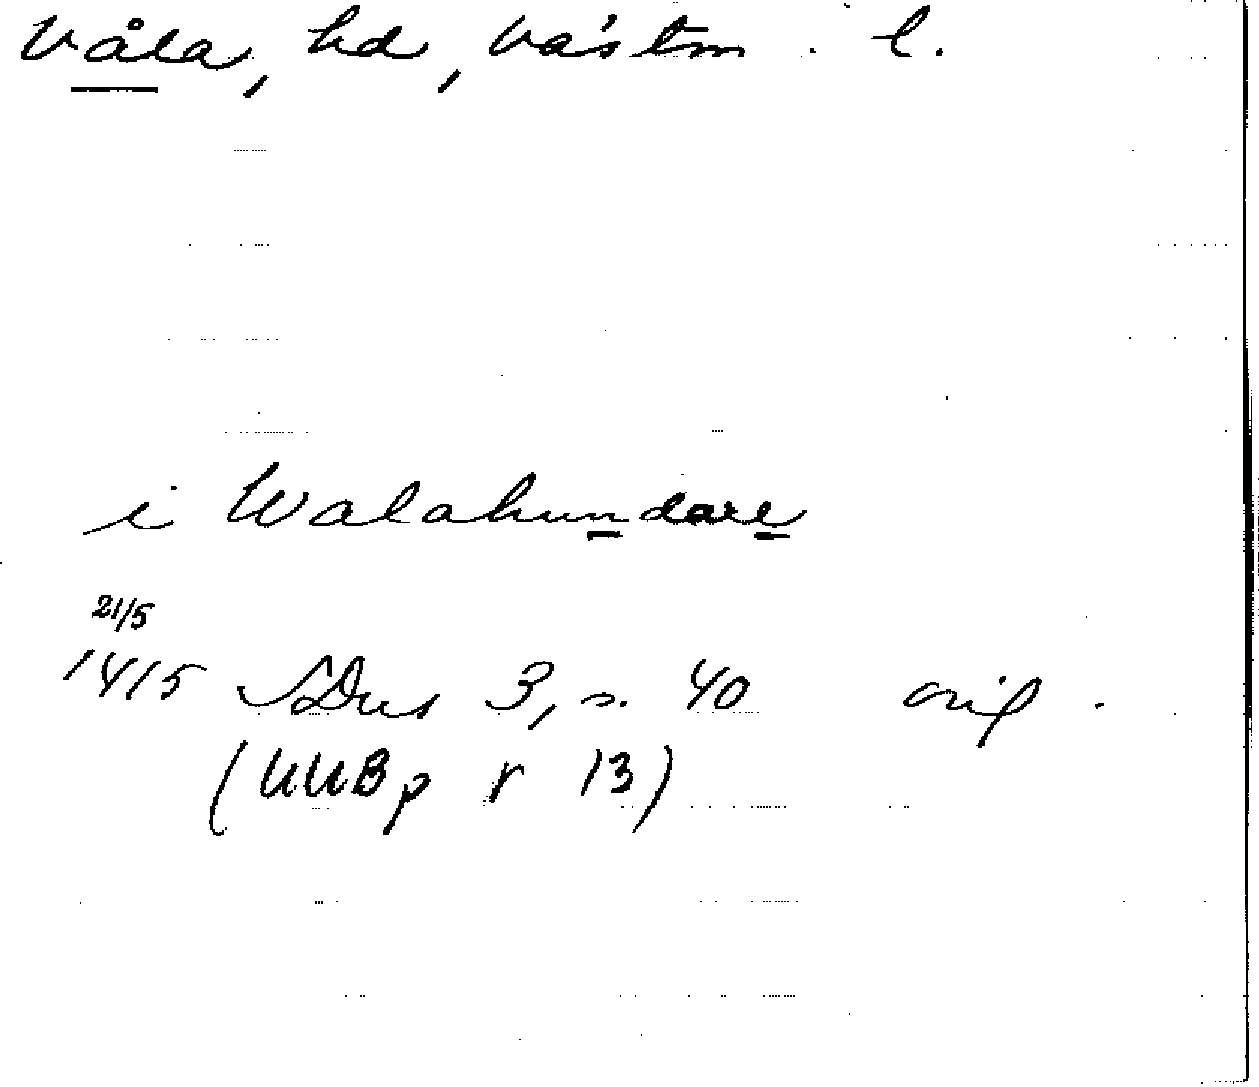 Våla, hd, Västm. l.
i Walahundare
21/5
1415 SDns 3, s. 40 orig.
(UUB p r 13)